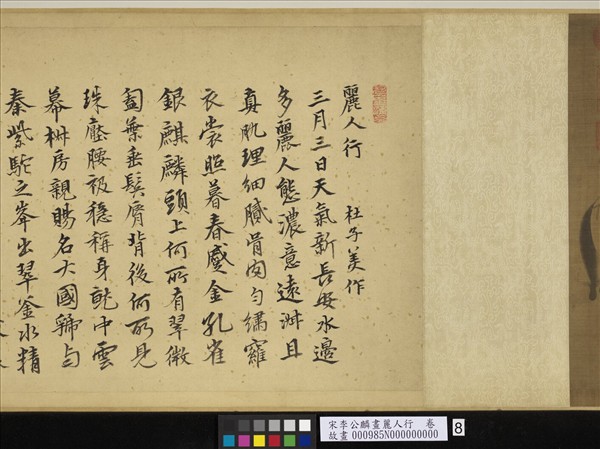 麗人行 杜子美作
三月三日天氣新長安水邊
多麗人態濃意遠淑且
真肌理細膩骨肉勻繡羅
衣裳照暮春蹙金孔雀
銀麒麟頭上何所有翠微
㔩葉垂鬢脣背後何所見
珠壓腰衱穩稱身就中雲
幕椒房親賜名大國虢与
秦紫駝之峯出翠釜水精
宋李公麟畫麗人行 卷
故畫 000985N000000000
8